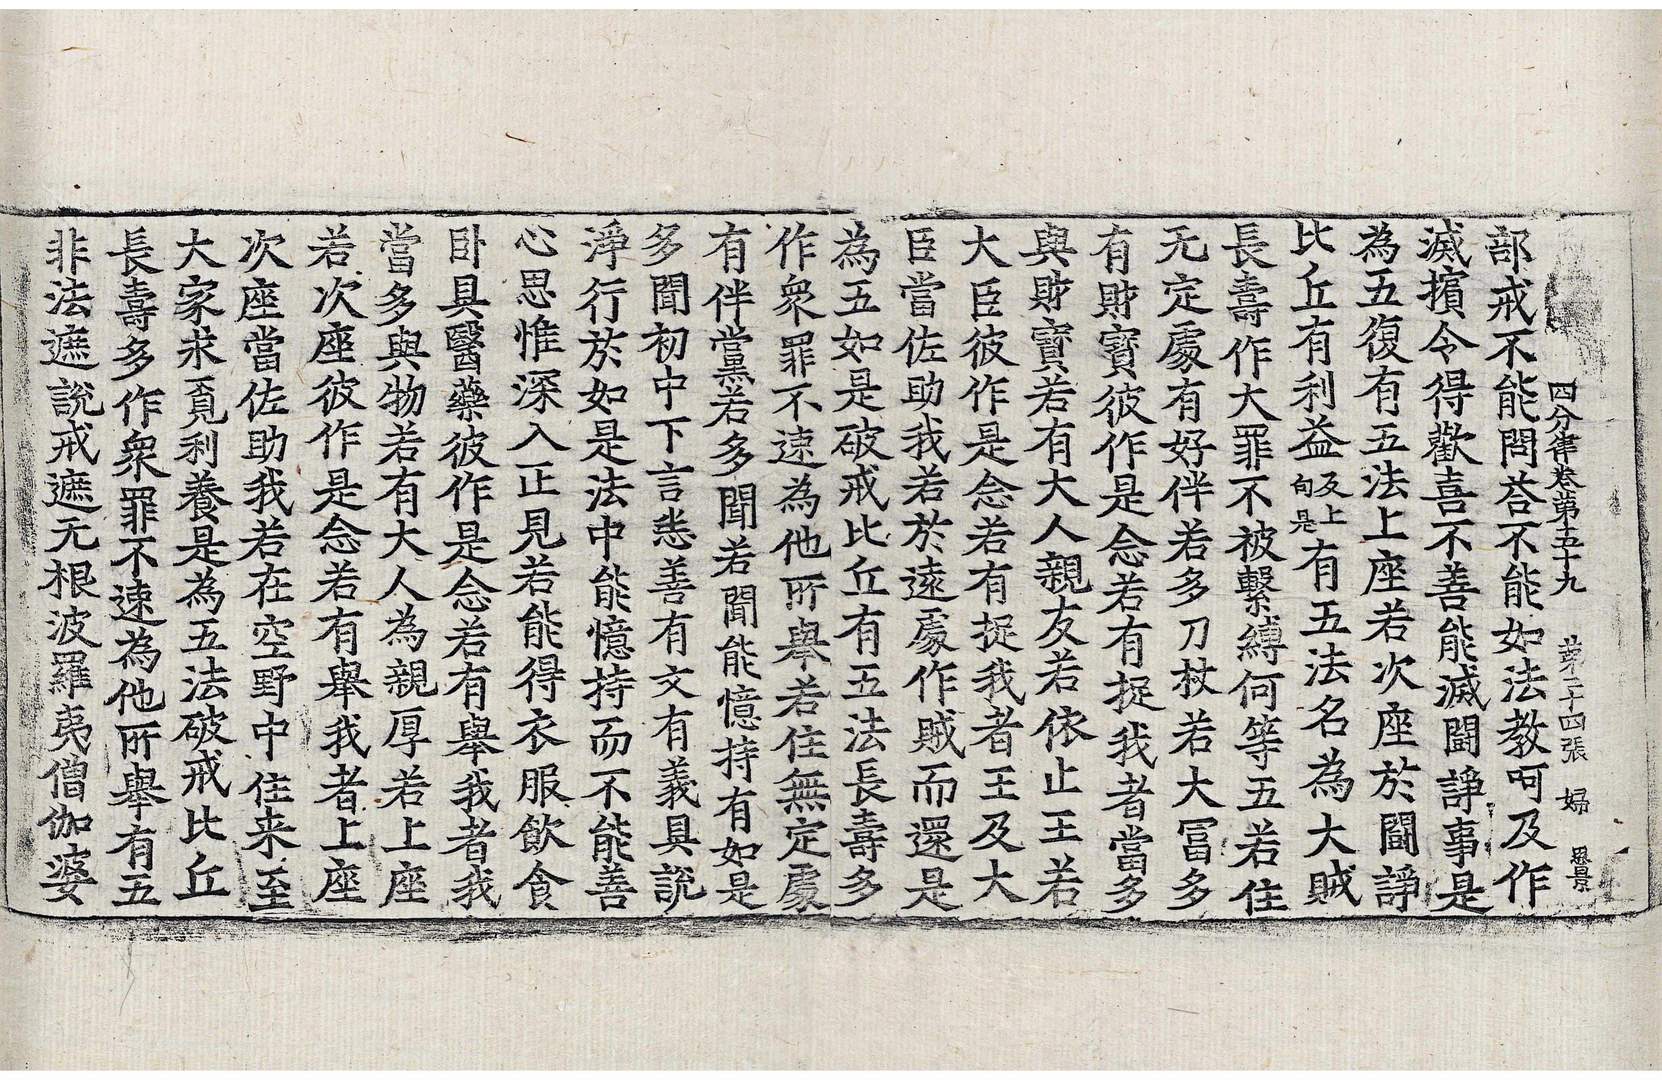 四分律卷第五十九　第二十四張　婦　思景
部戒不能問荅不能如法教呵及作
滅擯令得歡喜不善能滅鬪諍事是
為五復有五法上座若次座於鬪諍
比丘有利益及上句是有五法名為大賊
長壽作大罪不被繫縛何等五若住
无定處有好伴若多刀杖若大冨多
有財寶彼作是念若有捉我者當多
與財寶若有大人親友若依止王若
大臣彼作是念若有捉我者王及大
臣當佐助我若於遠處作賊而還是
為五如是破戒比丘有五法長壽多
作衆罪不速為他所舉若住無定處
有伴黨若多聞若聞能憶持有如是
多聞初中下言悉善有文有義具說
淨行於如是法中能憶持而不能善
心思惟深入正見若能得衣服飲食
卧具醫藥彼作是念若有舉我者我
當多與物若有大人為親厚若上座
若次座彼作是念若有舉我者上座
次座當佐助我若在空野中住来至
大家求覔利養是為五法破戒比丘
長壽多作衆罪不速為他所舉有五
非法遮說戒遮无根波羅夷僧伽婆